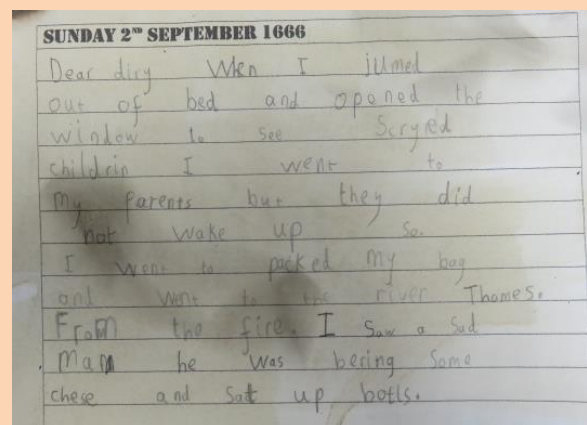 SUNDAY 2ND SEPTEMBER 1666
Dear diry When I jumed
out of bed and oponed the
window to see Scryed
childrin I went to
my parents but they did
not wake up so.
I went to packed my bag
and went to the river Thames.
From the fire. I saw a sad
Man he was bering some
chese and satt up botls.